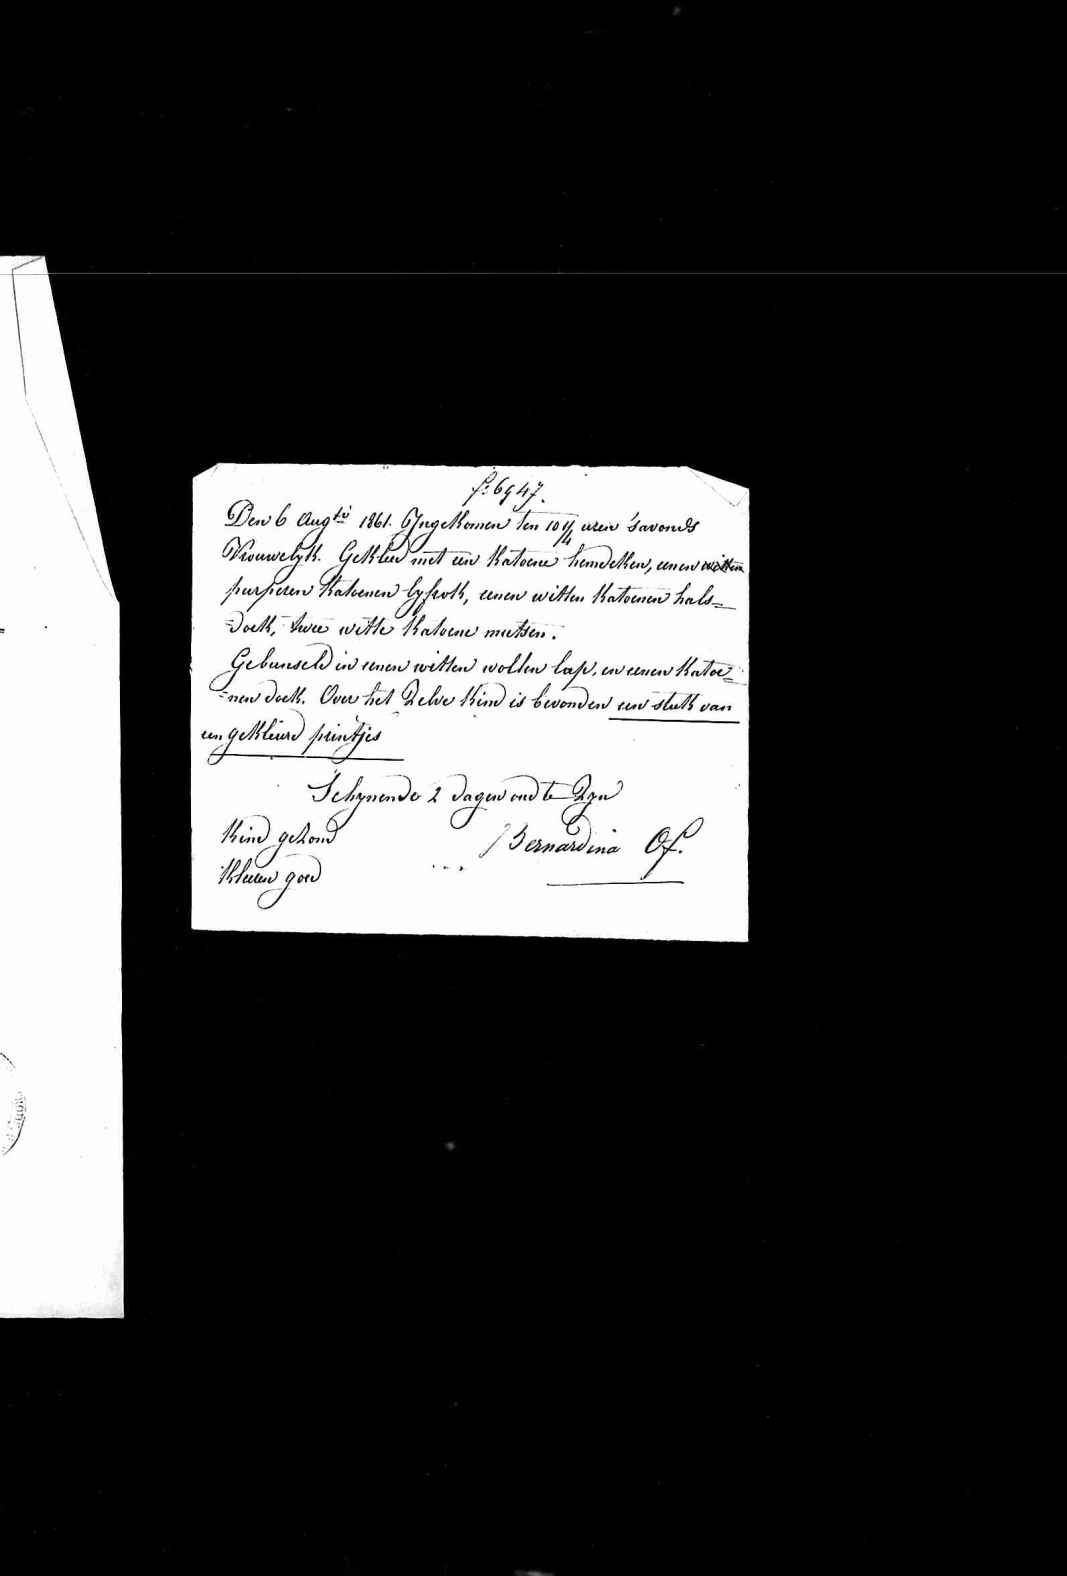 f: 6947.
Den 6 Augti 1861. Ingekomen ten 10 1/4 uren 'savonds
Vrouwelyk. Gekleed met een katoene hemdeken, eenen witten
purperen katoenen lyfrok, eenen witten katoenen hals=
=doek, twee witte katoene mutsen.
Gebunseld in eenen witten wollen lap, en eenen katoe=
=nen doek. Over het Zelve kind is bevonden een stuk van
een gekleurd printjes
Schynende 2 dagen oud te Zyn
Kind gezond
Bernardina Of.
Kleeren goed